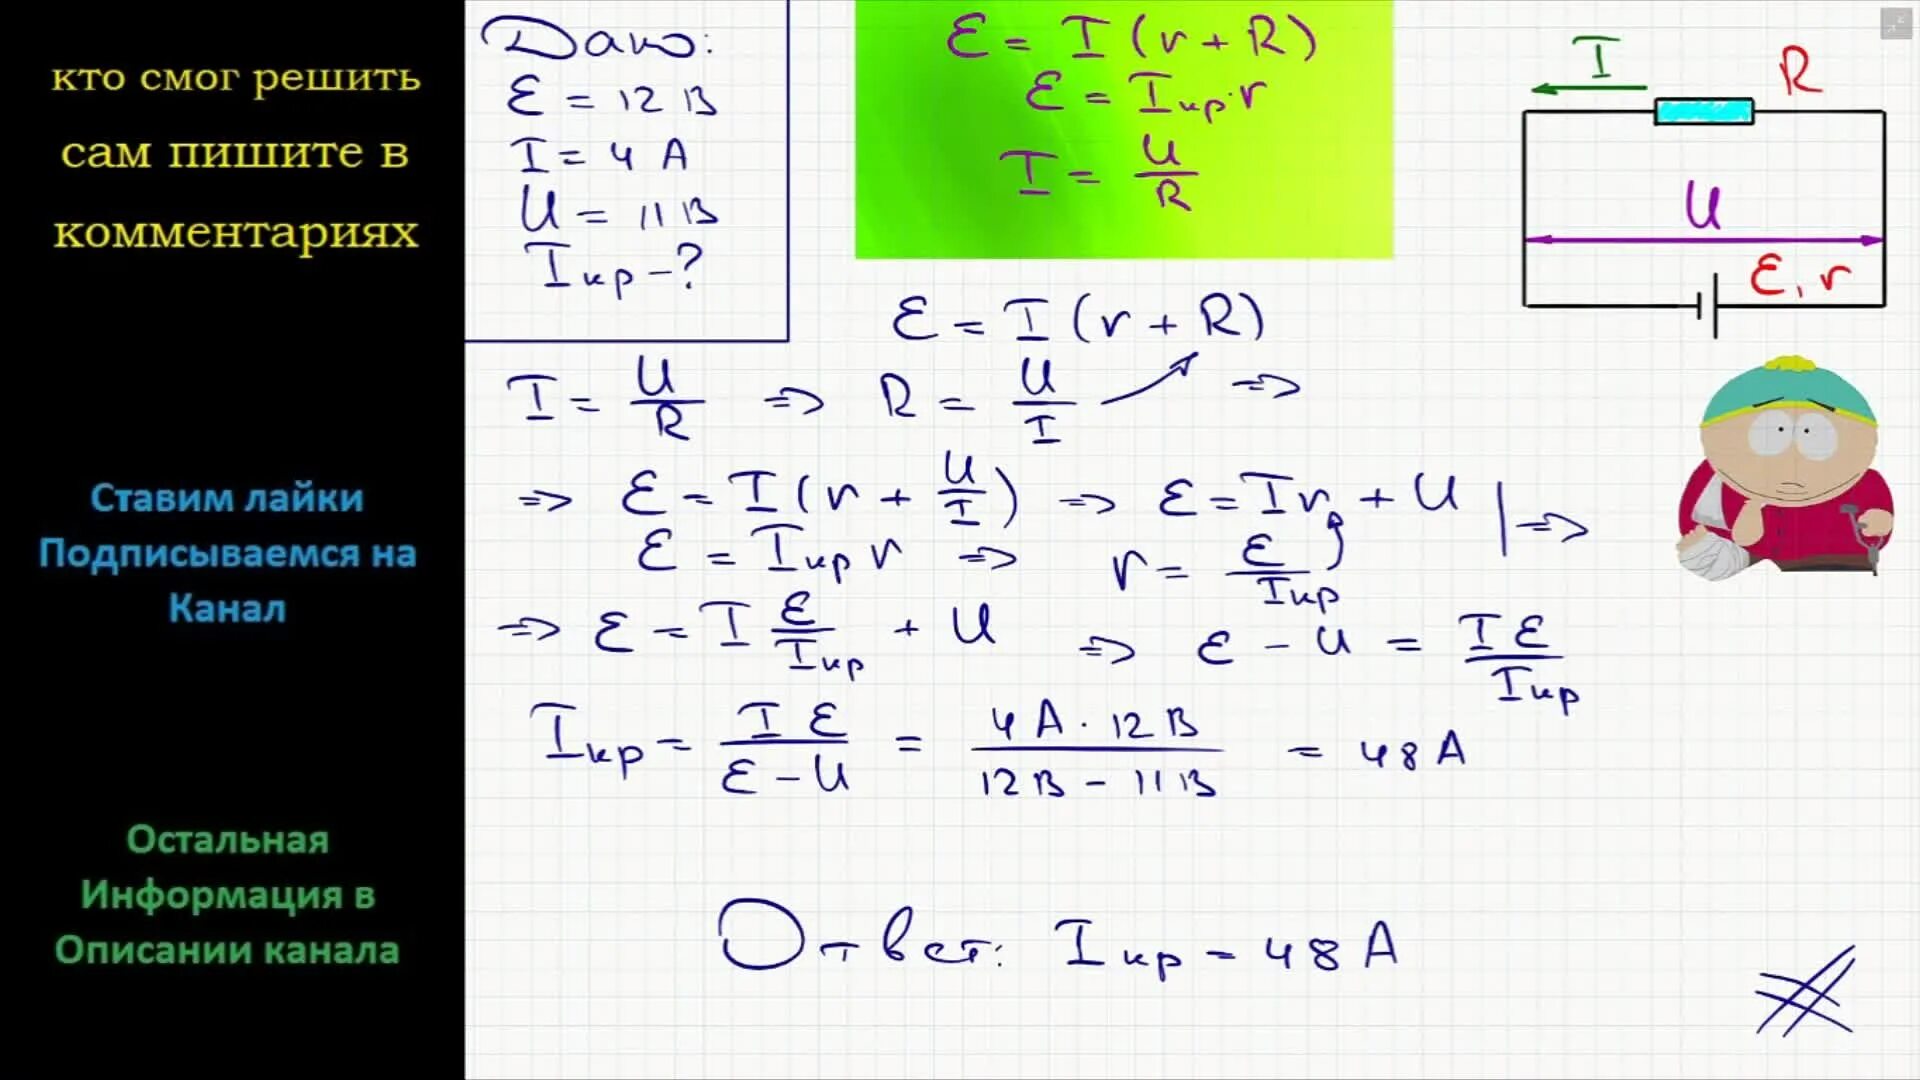 кто смог решить
сам пишите в
комментариях
Ставим лайки
Подписываемся на
Канал
Остальная
Информация в
Описании канала
Дано:
Ɛ = 12 В
I = 4 А
U = 11 В
Iкр – ?
Ɛ = I (r + R)
Ɛ = Iкр · r
I = U/R
I
R
U
Ɛ, r
Ɛ = I (r + R)
I = U/R ⇒ R = U/I ⇒
⇒ Ɛ = I (r + U/I) ⇒ Ɛ = Ir + U | ⇒
Ɛ = Iкр r ⇒ r = Ɛ/Iкр
⇒ Ɛ = I Ɛ/Iкр + U ⇒ Ɛ – U = IƐ/Iкр
Iкр = IƐ/(Ɛ – U) = (4 А · 12 В)/(12 В – 11 В) = 48 А
Ответ: Iкр = 48 А